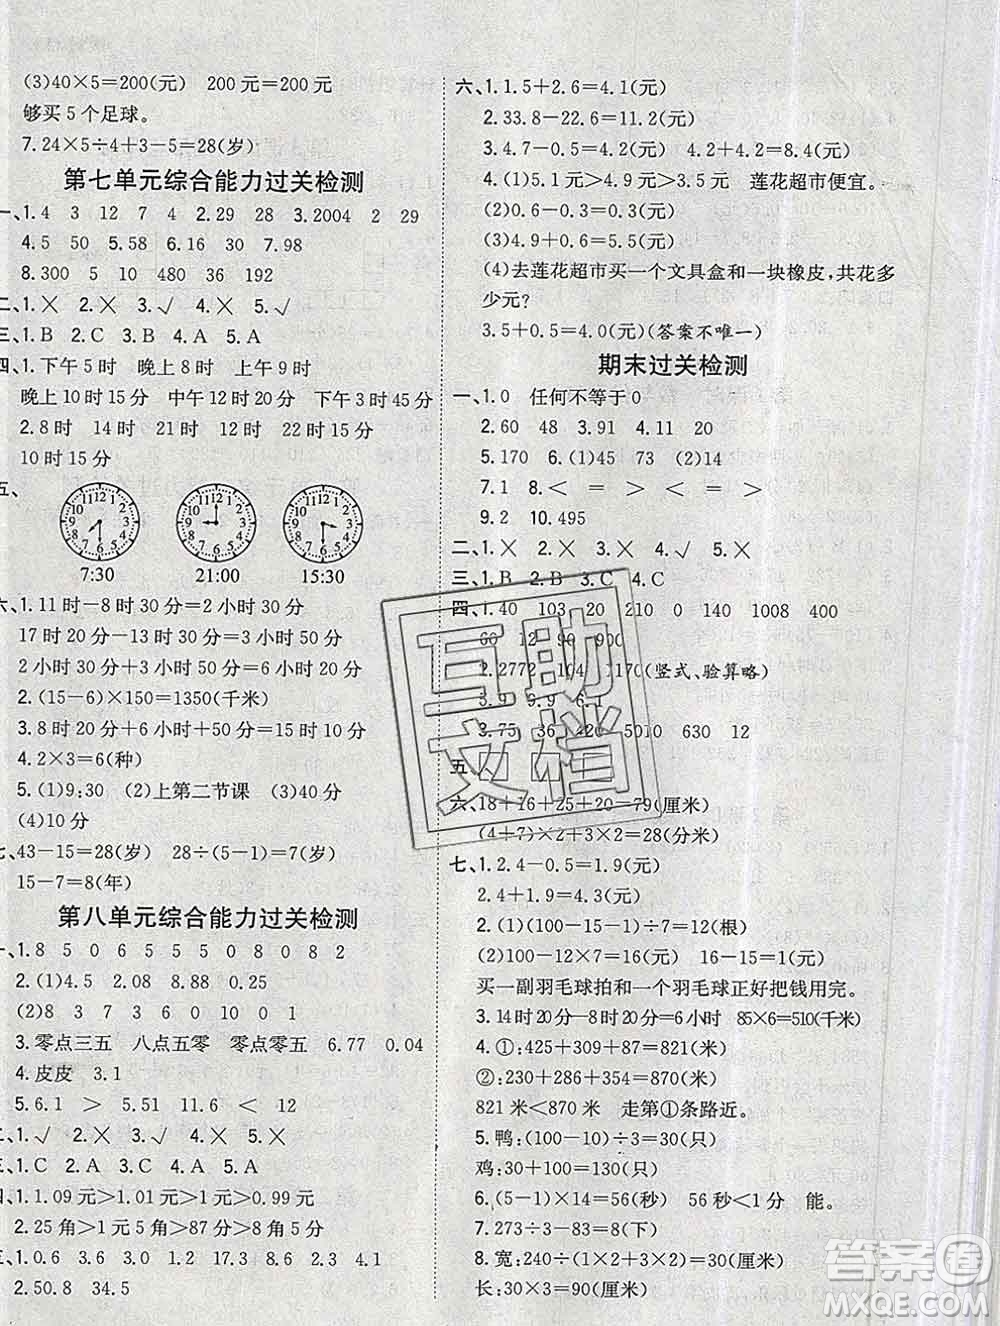 (3)40×5=200(元) 200元=200元
够买5个足球。
7.24×5÷4+3-5=28(岁)
第七单元综合能力过关检测
一、1.4 3 12 7 4 2.29 28 3.2004 2 29
4.5 50 5.58 6.16 30 7.98
8.300 5 10 480 36 192
二、1.× 2.× 3.√ 4.× 5.√
三、1.B 2.C 3.B 4.A 5.A
四、1.下午5时 晚上8时 上午9时
晚上10时15分 中午12时20分 下午3时45分
2.8时 14时 21时 7时30分 19时
10时15分
五、
7:30 21:00 15:30
六、1.11时-8时30分=2小时30分
17时20分-14时30分=2小时50分
2小时30分<2小时50分
2.(15-6)×150=1350(千米)
3.8时20分+2小时10分=10时30分
4.2×3=6(种)
5.(1)9:30 (2)上第二节课 (3)40分
(4)10分
七、43-15=28(岁) 28÷(5-1)=7(岁)
15-7=8(年)
第八单元综合能力过关检测
一、1.8 5 0 6 5 5 5 0 8 0 8 2
2.(1)4.15 2.08 0.89
(2)8 3 7 3 6 0 10 0 1
3.零点三五 八点五零 零点零五 6.77 0.04
4.皮皮 3.1
5.6.1 > 5.51 11.6 < 12
二、1.√ 2.× 3.× 4.× 5.×
三、1.C 2.A 3.A 4.C 5.B
四、1.1.09元>1.01元>1元>0.99元
2.25角>1元5角>87分>8角5分
三、1.0.6 3.6 3.0 1.2 17.3 8.6 3.4
2.50.8 34.5
六、1.1.5+2.6=4.1(元)
2.33.8-22.6=11.2(元)
3.4.7-0.5=4.2(元) 4.2+4.2=8.4(元)
4.(1)5.1元>4.9元>3.5元 莲花超市便宜。
(2)0.6-0.3=0.3(元)
(3)4.9+0.5=5.4(元)
(4)去莲花超市买一个文具盒和一块橡皮,共花多
少元?
3.5+0.5=4.0(元)(答案不唯一)
期末过关检测
一、1.0 任何不等于0
2.60 48 3.91 4.11 20
5.170 6.(1)45 73 (2)14
7.1 8.< = < = >
9.2 10.495
二、1.× 2.× 3.× 4.√ 5.×
三、1.B 2.B 3.C 4.C
四、1.40 103 20 210 0 140 1008 400
60 12 90 900
2.2772 104 1170(竖式、验算略)
3.9 9.9 6.1
3.75 36 420 5010 630 12
五、
六、18+16+25+20=79(厘米)
(4+7)×2+3×2=28(分米)
七、1.2.4-0.5=1.9(元)
2.4+1.9=4.3(元)
2.(1)(100-16)÷7=12(根)
(2)100-12×7=16(元) 16-15=1(元)
买一副羽毛球拍和一个羽毛球正好把钱用完。
3.14时20分-8时20分=6小时 85×6=510(千米)
4.①:425+309+87=821(米)
②:230+286+354=870(米)
821米<870米 走第①条路近。
5.鸭:(100-10)÷3=30(只)
鸡:30+100=130(只)
6.(5-1)×14=56(秒) 56秒<1分 能。
7.273÷3-83=8(下)
8.宽:240÷(1×2+3×2)=30(厘米)
长:30×3=90(厘米)
互助
文档
答案圈
MXQE.COM